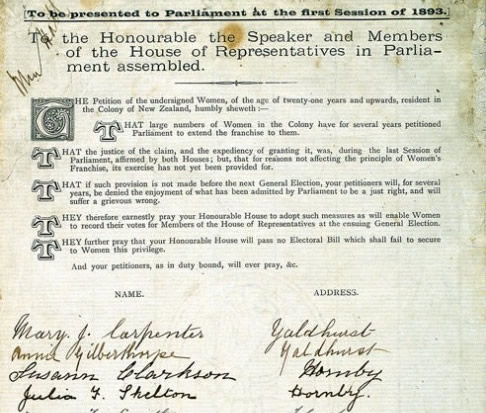 To be presented to Parliament at the first Session of 1893.
To the Honourable the Speaker and Members
of the House of Representatives in Parlia-
ment assembled.
THE Petition of the undersigned Women, of the age of twenty-one years and upwards, resident in
the Colony of New Zealand, humbly sheweth :—
THAT large numbers of Women in the Colony have for several years petitioned
Parliament to extend the franchise to them.
THAT the justice of the claim, and the expediency of granting it, was, during the last Session of
Parliament, affirmed by both Houses; but, that for reasons not affecting the principle of Women's
Franchise, its exercise has not yet been provided for.
THAT if such provision is not made before the next General Election, your petitioners will, for several
years, be denied the enjoyment of what has been admitted by Parliament to be a just right, and will
suffer a grievous wrong.
THEY therefore earnestly pray your Honourable House to adopt such measures as will enable Women
to record their votes for Members of the House of Representatives at the ensuing General Election.
THEY further pray that your Honourable House will pass no Electoral Bill which shall fail to secure
to Women this privilege.
And your petitioners, as in duty bound, will ever pray, &c.
NAME. ADDRESS.
Mary J. Carpenter Yaldhurst
Annie Gilberthorpe Yaldhurst
Susann Clarkson Hornby
Julia F. Shelton Hornby.